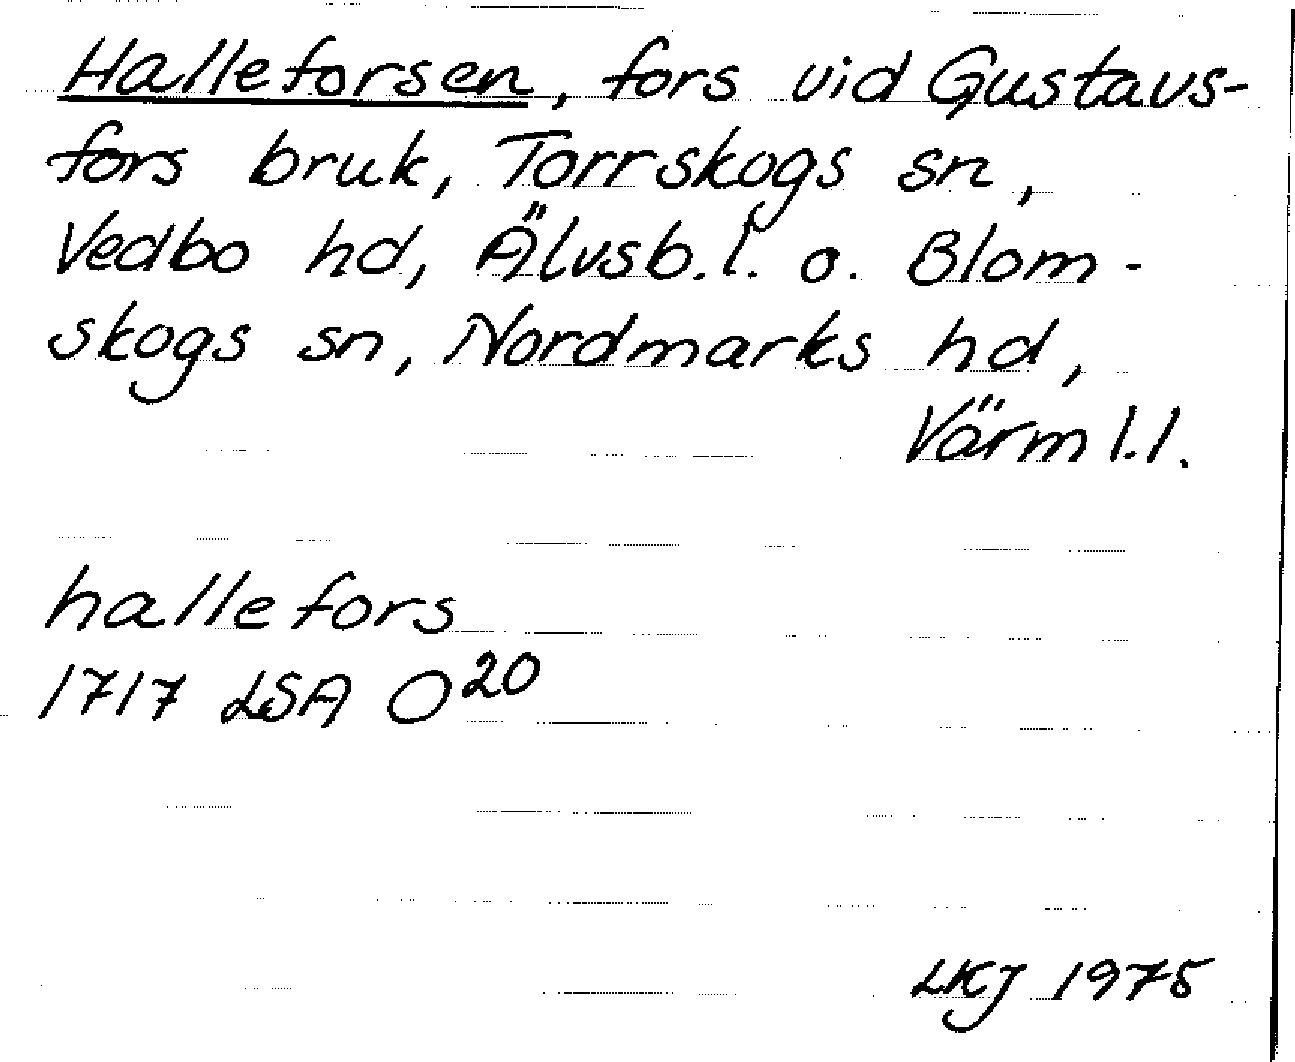 Halleforsen, fors vid Gustavs-
fors bruk, Torrskogs sn,
Vedbo hd, Älvsb.l. o. Blom-
skogs sn, Nordmarks hd,
Värml.l.
hallefors
1717 LSA O20
LKJ 1975